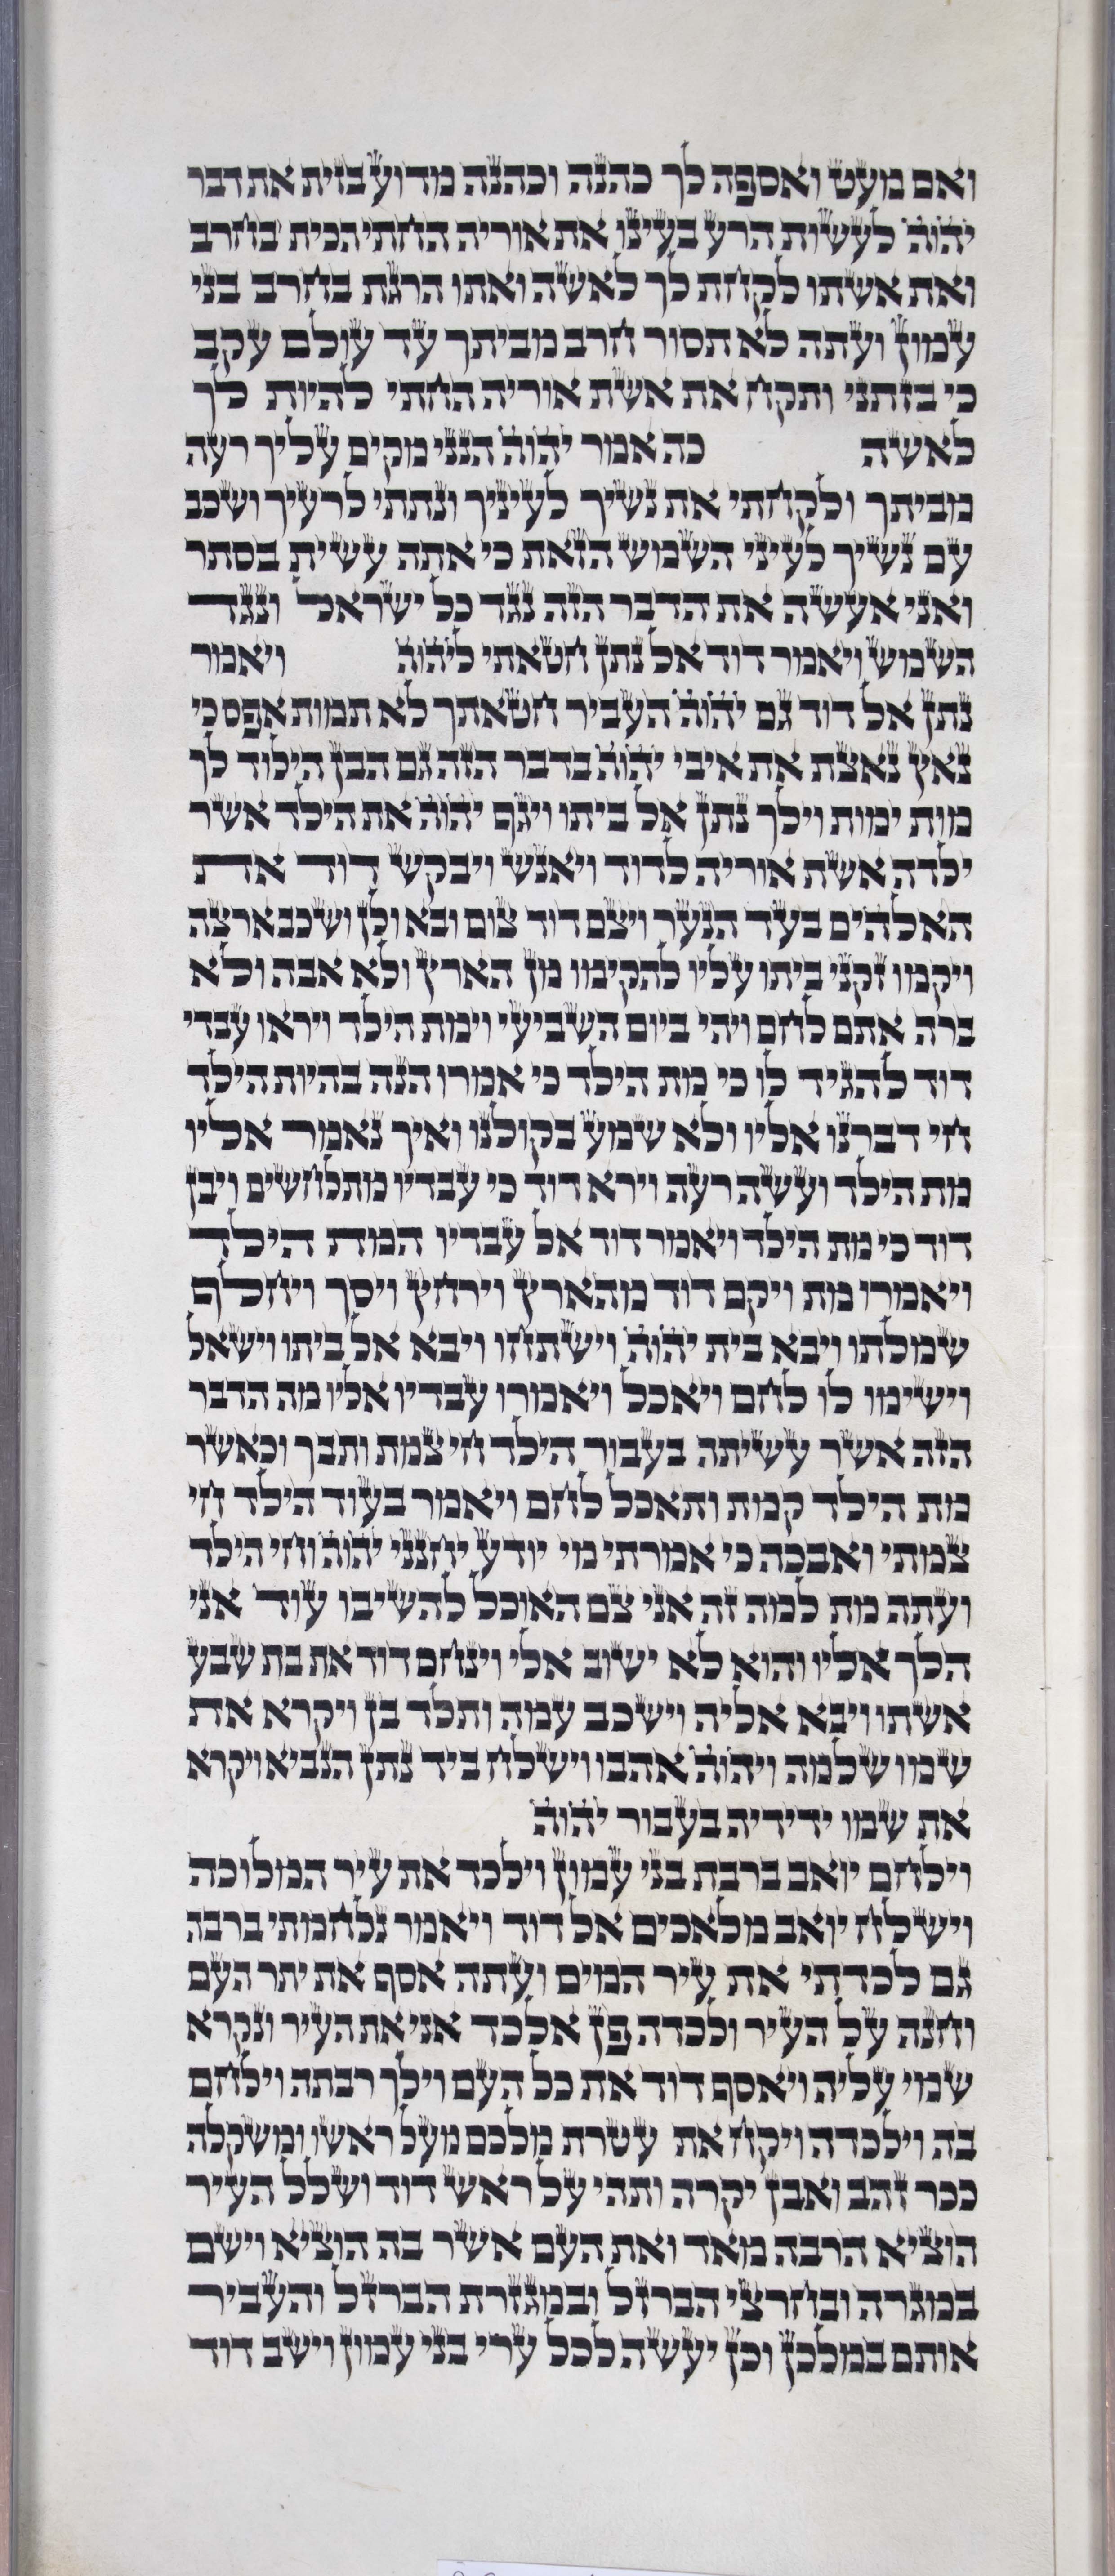 ואם מעט ואספה לך כהנה וכהנה מדוע בזית את דבר
יהוה לעשות הרע בעינו את אוריה החתי הכית בחרב
ואת אשתו לקחת לך לאשה ואתו הרגת בחרב בני
עמון ועתה לא תסור חרב מביתך עד עולם עקב
כי בזתני ותקח את אשת אוריה החתי להיות לך
לאשה כה אמר יהוה הנני מקים עליך רעה
מביתך ולקחתי את נשיך לעיניך ונתתי לרעיך ושכב
עם נשיך לעיני השמש הזאת כי אתה עשית בסתר
ואני אעשה את הדבר הזה נגד כל ישראל ונגד
השמש ויאמר דוד אל נתן חטאתי ליהוה ויאמר
נתן אל דוד גם יהוה העביר חטאתך לא תמות אפס כי
נאץ נאצת את איבי יהוה בדבר הזה גם הבן הילוד לך
מות ימות וילך נתן אל ביתו ויגף יהוה את הילד אשר
ילדה אשת אוריה לדוד ויאנש ויבקש דוד את
האלהים בעד הנער ויצם דוד צום ובא ולן ושכב ארצה
ויקמו זקני ביתו עליו להקימו מן הארץ ולא אבה ולא
ברה אתם לחם ויהי ביום השביעי וימת הילד ויראו עבדי
דוד להגיד לו כי מת הילד כי אמרו הנה בהיות הילד
חי דברנו אליו ולא שמע בקולנו ואיך נאמר אליו
מת הילד ועשה רעה וירא דוד כי עבדיו מתלחשים ויבן
דוד כי מת הילד ויאמר דוד אל עבדיו המת הילד
ויאמרו מת ויקם דוד מהארץ וירחץ ויסך ויחלף
שמלתו ויבא בית יהוה וישתחו ויבא אל ביתו וישאל
וישימו לו לחם ויאכל ויאמרו עבדיו אליו מה הדבר
הזה אשר עשיתה בעבור הילד חי צמת ותבך וכאשר
מת הילד קמת ותאכל לחם ויאמר בעוד הילד חי
צמתי ואבכה כי אמרתי מי יודע יחנני יהוה וחי הילד
ועתה מת למה זה אני צם האוכל להשיבו עוד אני
הלך אליו והוא לא ישוב אלי וינחם דוד את בת שבע
אשתו ויבא אליה וישכב עמה ותלד בן ויקרא את
שמו שלמה ויהוה אהבו וישלח ביד נתן הנביא ויקרא
את שמו ידידיה בעבור יהוה
וילחם יואב ברבת בני עמון וילכד את עיר המלוכה
וישלח יואב מלאכים אל דוד ויאמר נלחמתי ברבה
גם לכדתי את עיר המים ועתה אסף את יתר העם
וחנה על העיר ולכדה פן אלכד אני את העיר ונקרא
שמי עליה ויאסף דוד את כל העם וילך רבתה וילחם
בה וילכדה ויקח את עטרת מלכם מעל ראשו ומשקלה
ככר זהב ואבן יקרה ותהי על ראש דוד ושלל העיר
הוציא הרבה מאד ואת העם אשר בה הוציא וישם
במגרה ובחרצי הברזל ובמגזרת הברזל והעביר
אותם במלכן וכן יעשה לכל ערי בני עמון וישב דוד